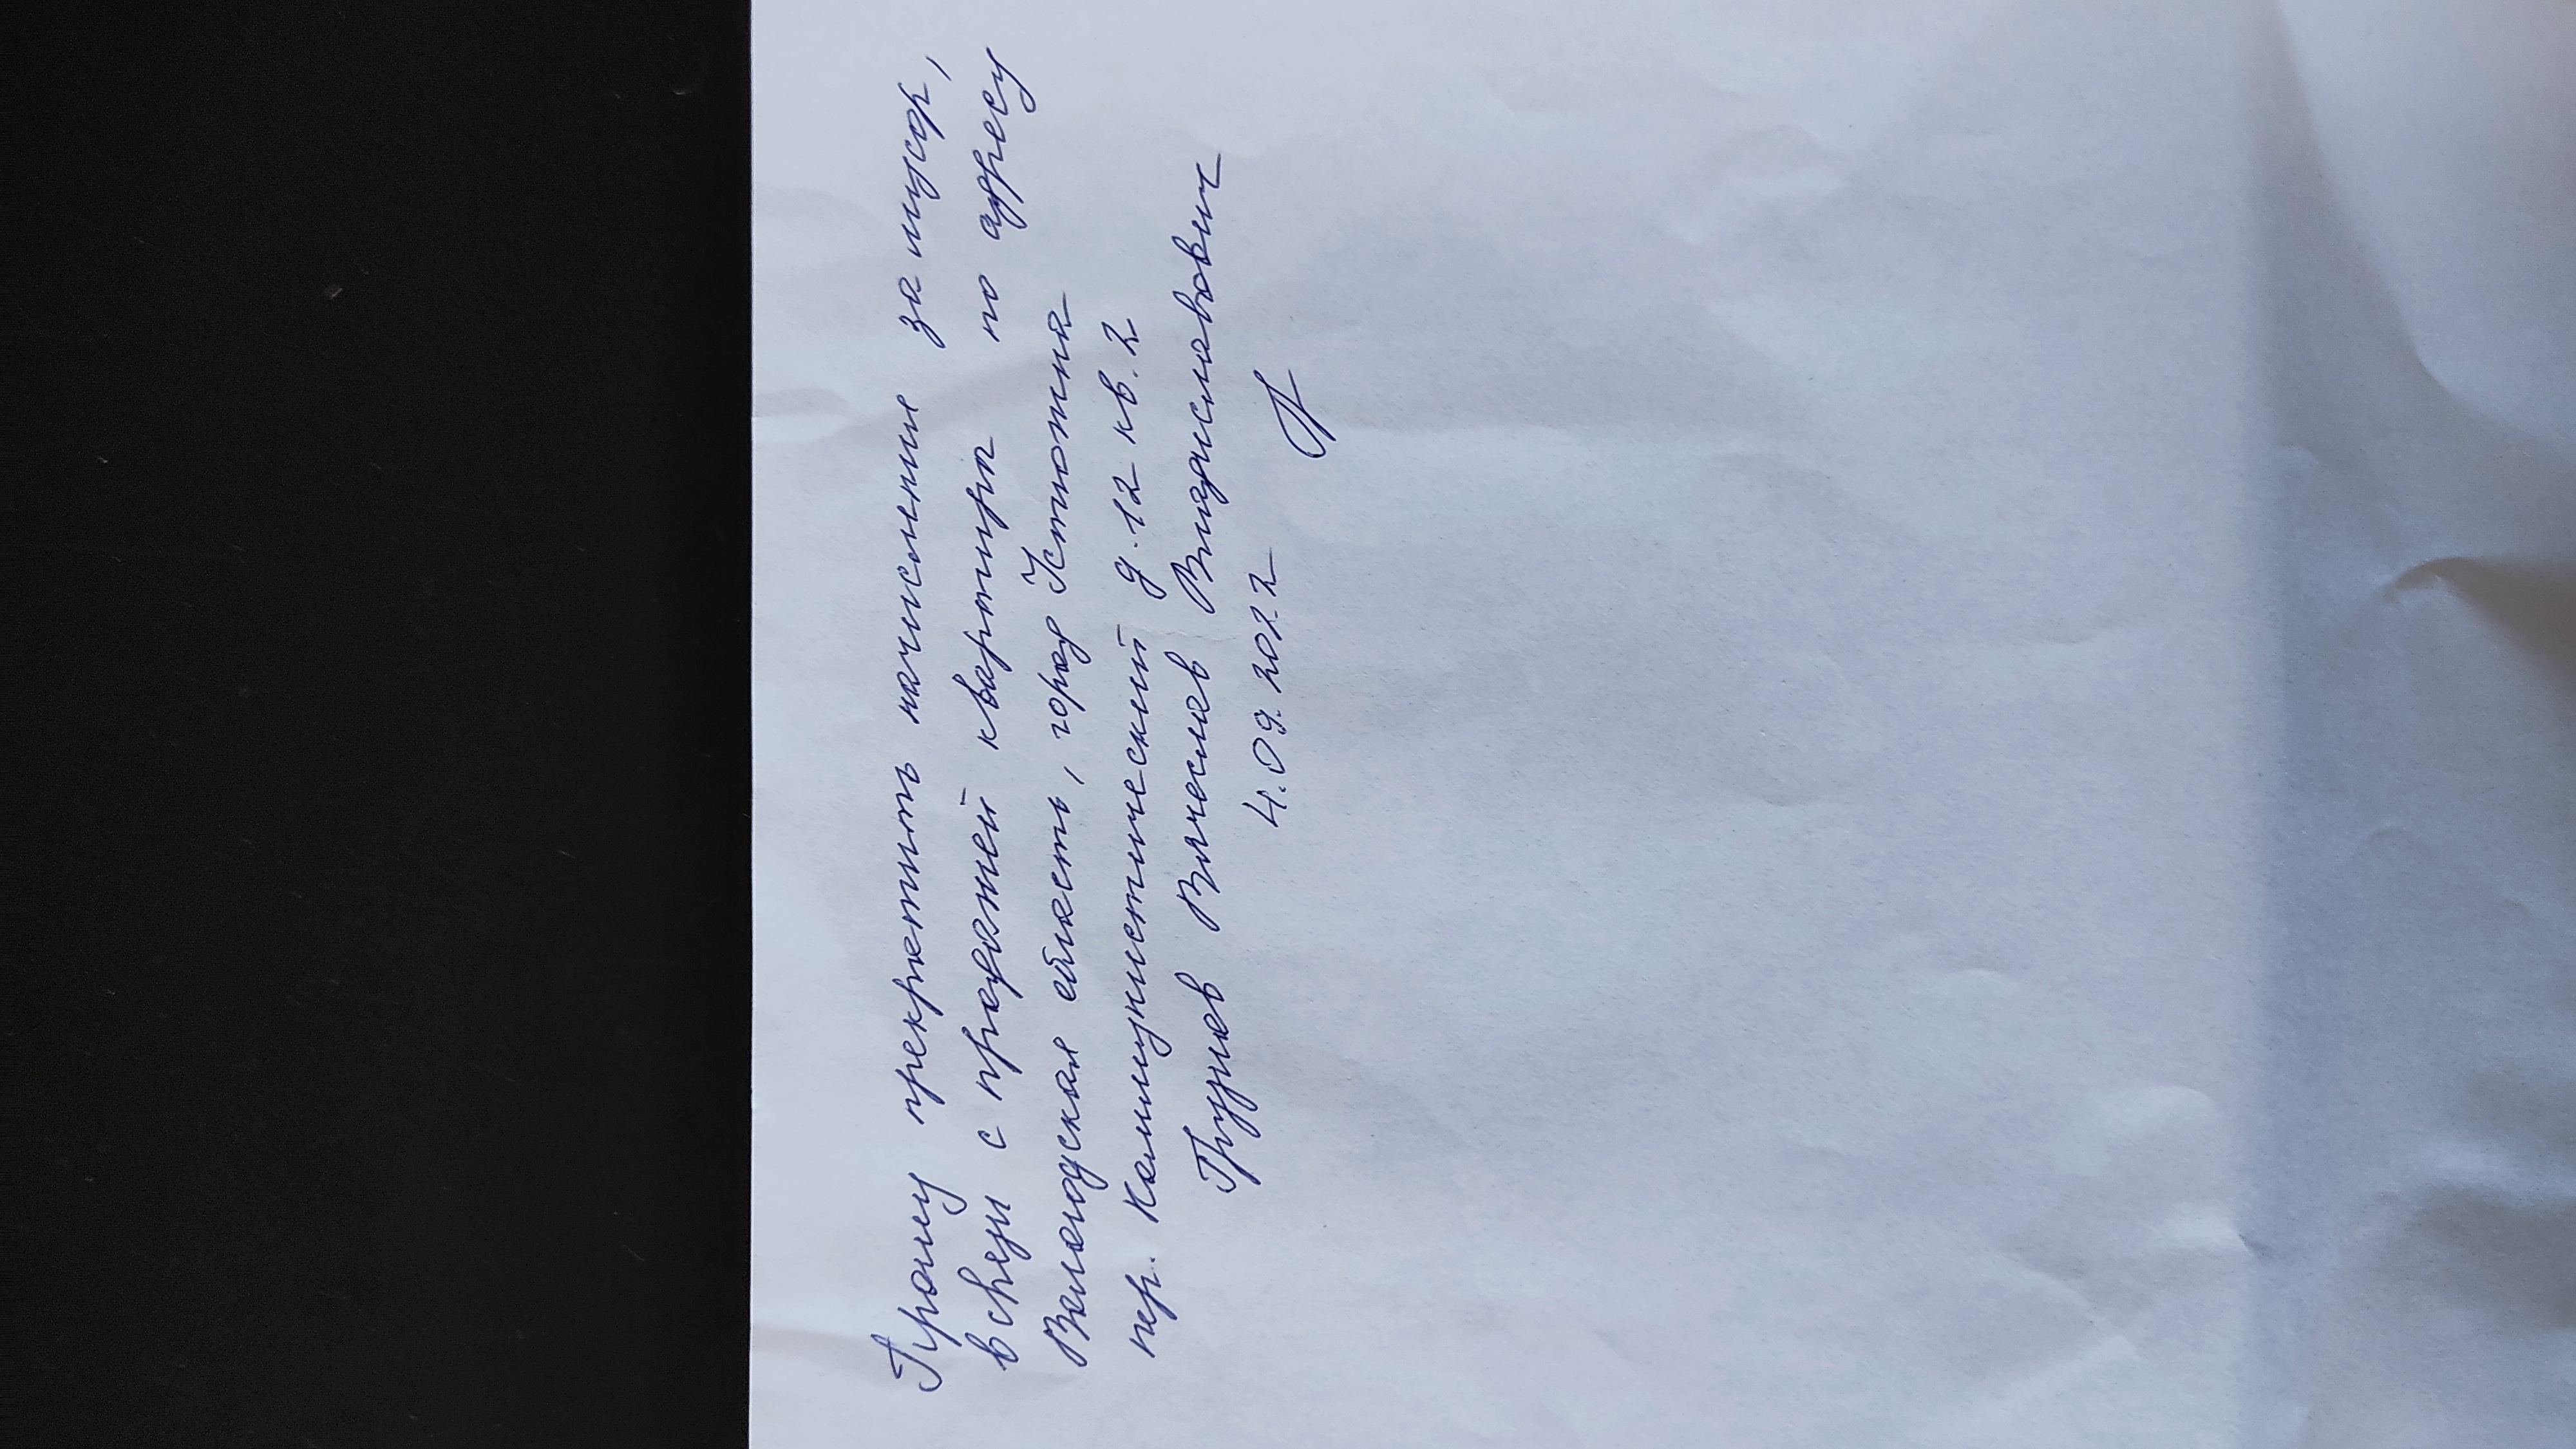 Прошу прекратить начисления за мусор,
в связи с продажей квартиры по адресу
Вологодская область, город Устюжна
пер. Коммунистический д. 12 кв. 2
Вячеслав Владиславович
4.09.2022